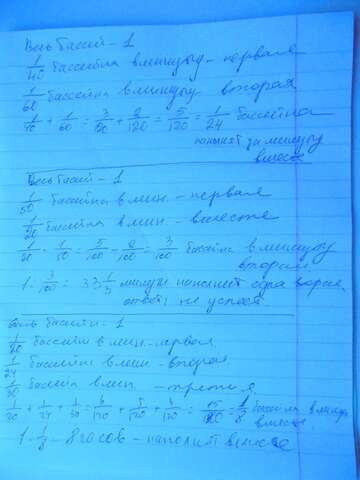 Весь басей - 1
1/40 бассейна в минуту - первая
1/60 бассейна в минуту вторая
1/40 + 1/60 = 3/120 + 2/120 = 5/120 = 1/24 бассейна
за минуту
вместе
Весь басей - 1
1/50 бассейна в мин. - первая
1/20 бассейна в мин. - вместе
1/20 - 1/50 = 5/100 - 2/100 = 3/100 бассейна в минуту
вторая
1 : 3/100 = 33 1/3 минуты наполнит одна вторая
ответ: не успеет.
весь басейн - 1
1/20 бассейна в мин - первая
1/24 бассейна в мин - вторая.
1/30 басейна в мин. - третья
1/20 + 1/24 + 1/30 = 6/120 + 5/120 + 4/120 = 15/120 = 1/8 бассейна в минуту
вместе.
1 : 1/8 - 8 часов - наполнит вместе